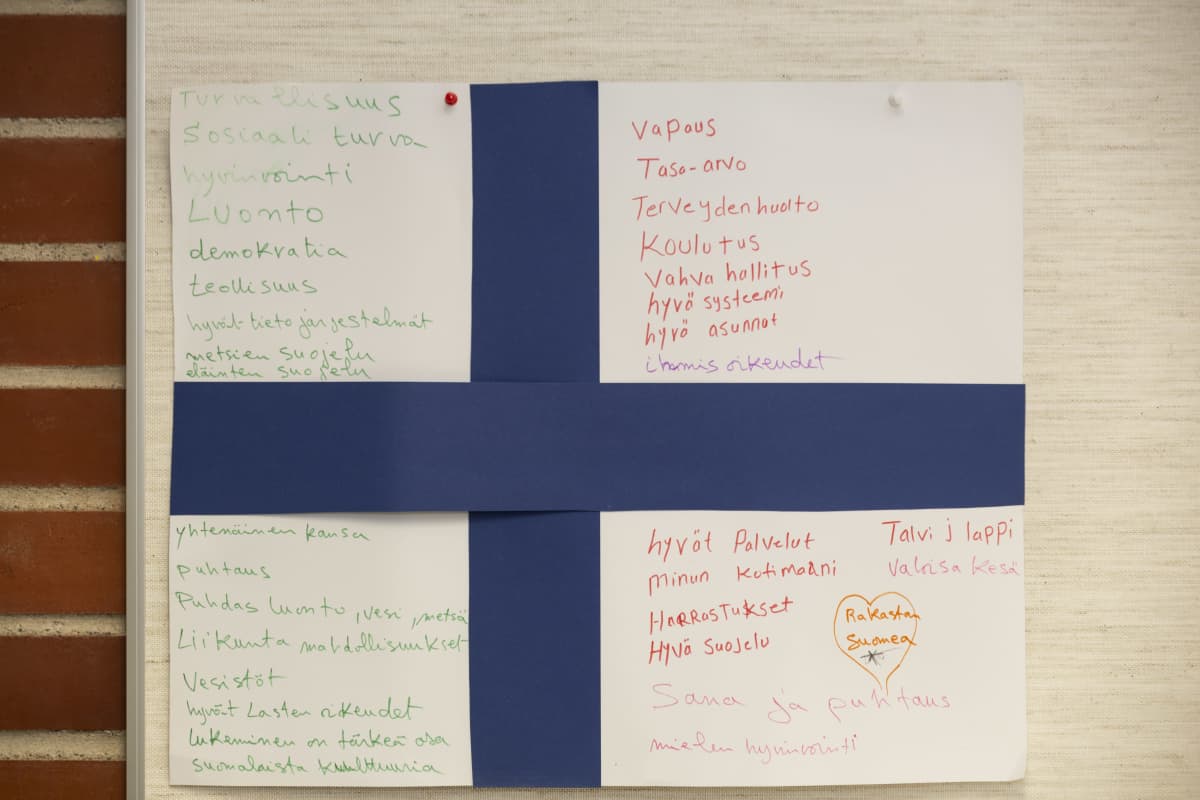 Turvallisuus
Sosiaali turva
hyvinvointi
Luonto
demokratia
teollisuus
hyvät tieto järjestelmät
metsien suojelu
eläinten suojelu
Vapaus
Taso-arvo
Terveydenhuolto
Koulutus
Vahva hallitus
hyvö systeemi
hyvö asunnot
ihamis oikeudet
yhtenäinen kansa
puhtaus
Puhdas luonto, vesi, metsä
Liikunta mahdollisuukset
Vesistöt
hyvät Lasten oikeudet
lukeminen on tärkeä osa
suomalaista kulttuuria
hyvöt Palvelut
minun kotimaani
HARRASTUKSET
Hyvä suojelu
Talvi j lappi
Valoisa Kesä
Rakastan
Suomea
Sana ja puhtaus
mielen hyvinvointi